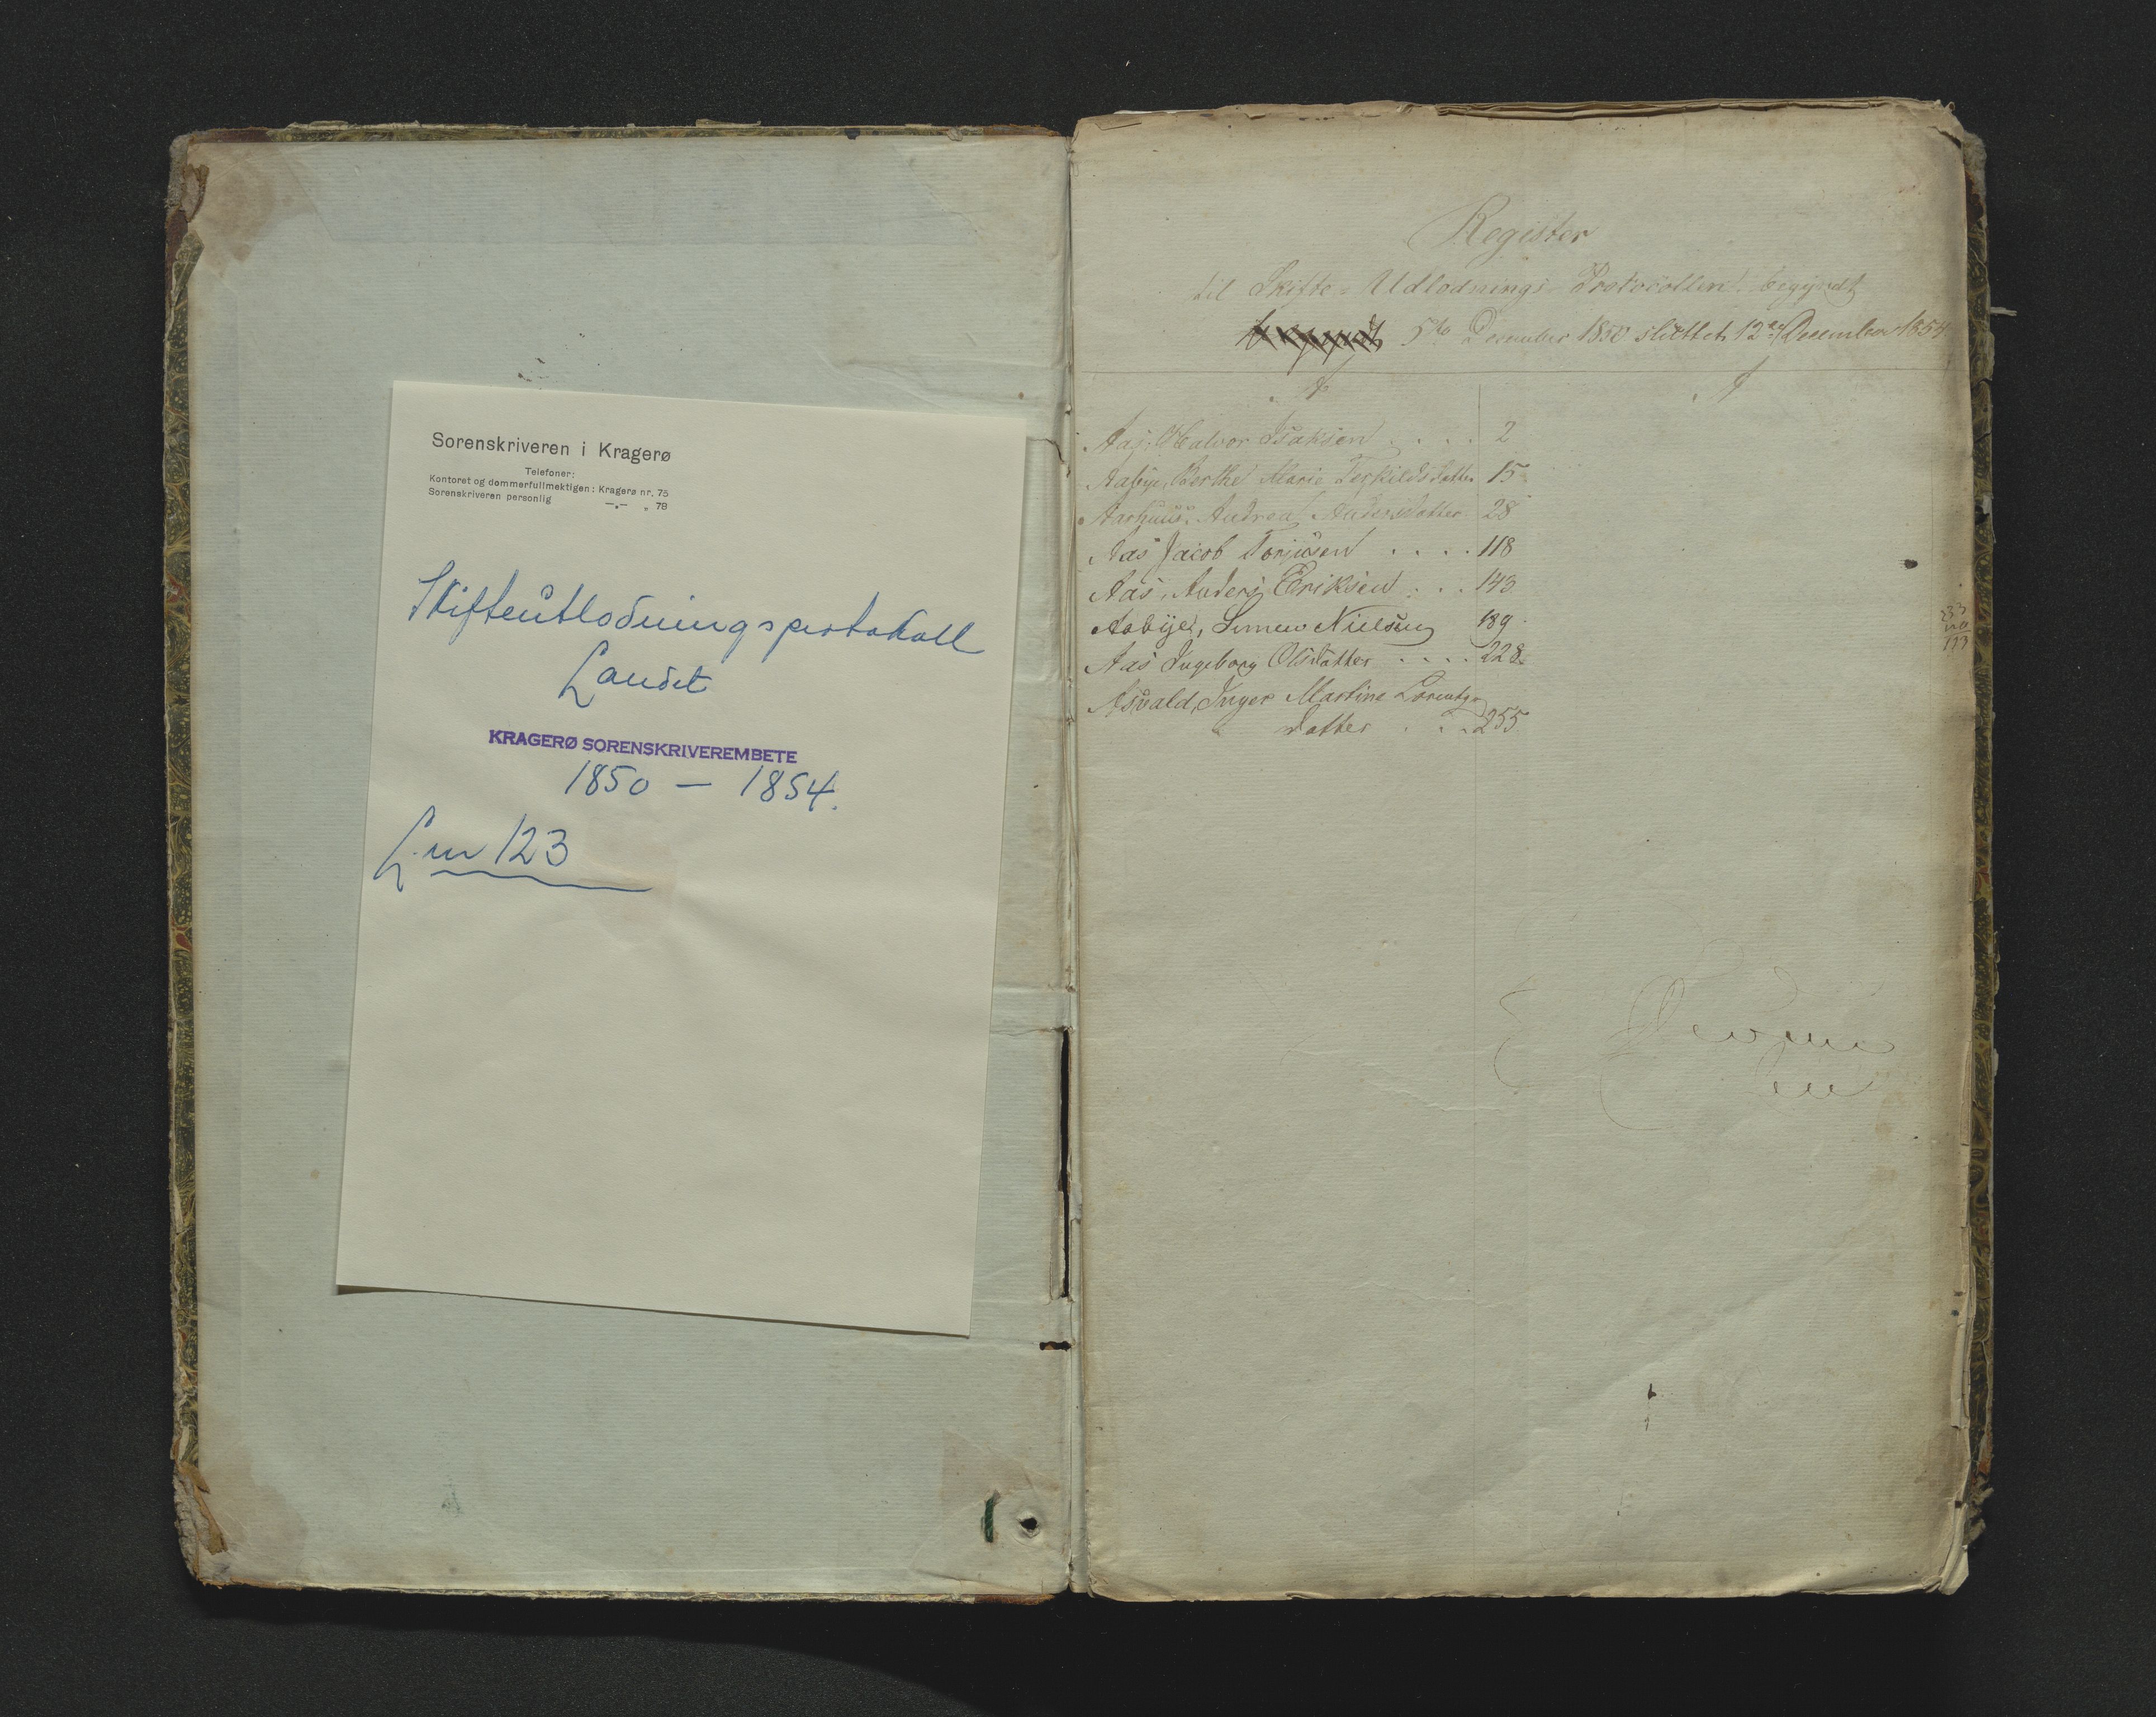 Sorenskriveren i Kragerø
Telefoner:
Kontoret og dommerfullmektigen: Kragerø nr. 75
Sorenskriveren personlig —„— „ 78
Skifteutlodningsprotokoll
Landet
KRAGERØ SORENSKRIVEREMBETE
1850 — 1854.
L. nr 123
Register
til Skifte-Udlodnings-Protocollen begyndt
begyndt 5te December 1850 sluttet 12te December 1854
A A
Aas, Halvor Isaksen . . . . 2
Aabye, Berthe Marie Terkildsdatter 15
Aarhuus, Andrea Andersdatter 28
Aas Jacob Torjusen . . . . 118
Aas, Anders Eriksen . . . 143
Aabye, Simen Nielsen 189
Aas Ingeborg Olsdatter . . . . 228
Asvald, Inger Martine Lorentz-
datter . . . 255